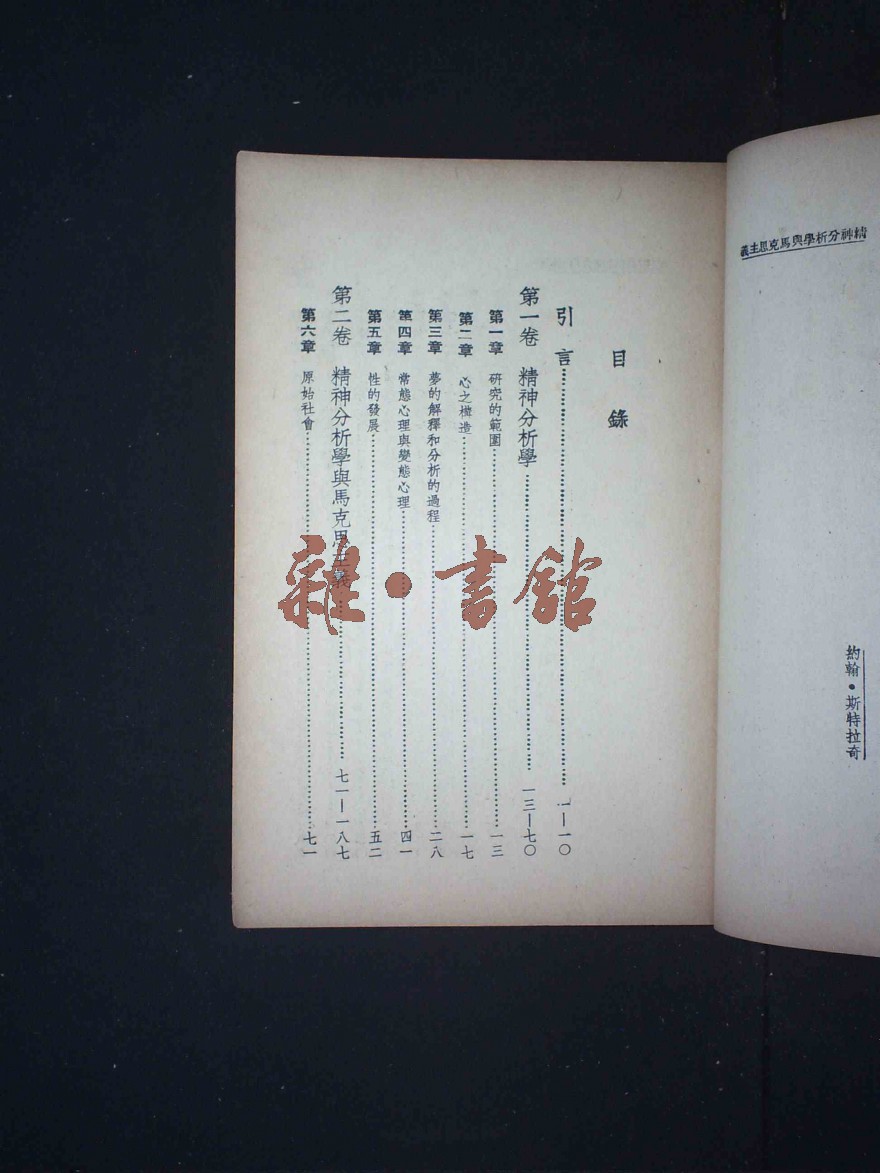 精神分析學與馬克思主義
約翰•斯特拉奇
目錄
引言……一—一〇
第一卷 精神分析學……一三—七〇
第一章 研究的範圍……一三
第二章 心之構造……一七
第三章 夢的解釋和分析的過程……二八
第四章 常態心理與變態心理……四一
第五章 性的發展……五二
第二卷 精神分析學與馬克思主義……七一—一八七
第六章 原始社會……七一
雜•書館